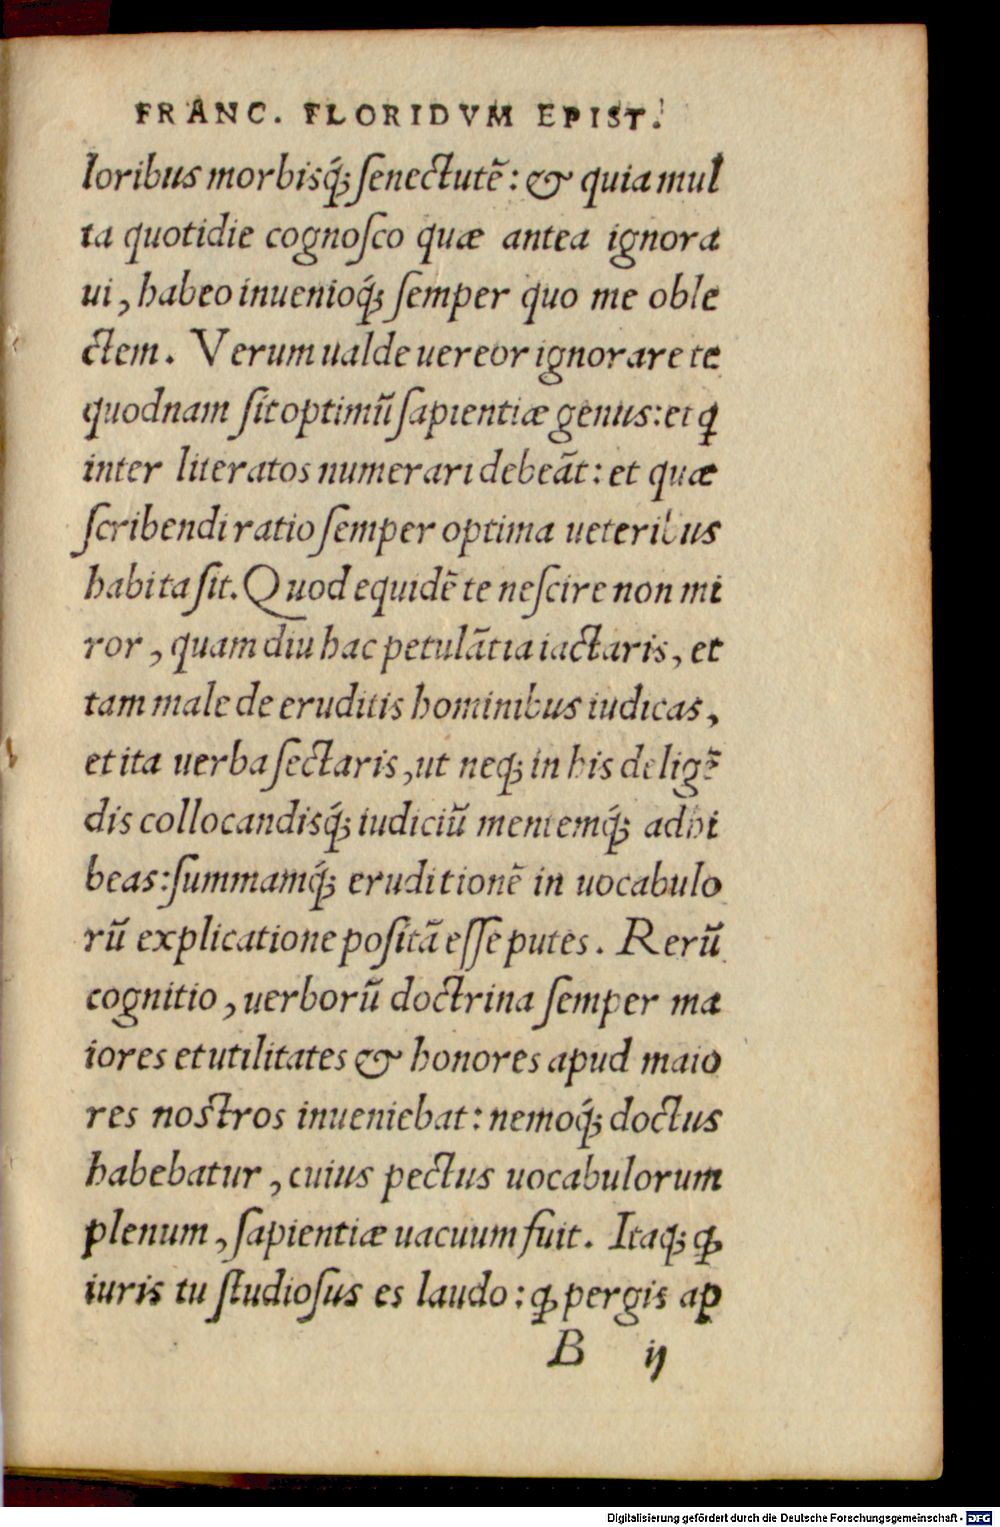 FRANC. FLORIDVM EPIST.
loribus morbisq́; ſenectutẽ: & quia mul
ta quotidie cognoſco quæ antea ignora
ui, habeo inuenioq́; ſemper quo me oble
ctem. Verum ualde uereor ignorare te
quodnam ſit optimũ ſapientiæ genus: et q̃
inter literatos numerari debeãt: et quæ
ſcribendi ratio ſemper optima ueteribus
habita ſit. Quod equidẽ te neſcire non mi
ror, quam diu hac petulãtia iactaris, et
tam male de eruditis hominibus iudicas,
et ita uerba ſectaris, ut neq; in his deligẽ
dis collocandisq́; iudiciũ mentemq́; adhi
beas: ſummamq́; eruditionẽ in uocabulo
rũ explicatione poſitã eſſe putes. Rerũ
cognitio, uerborũ doctrina ſemper ma
iores et utilitates & honores apud maio
res noſtros inueniebat: nemoq́; doctus
habebatur, cuius pectus uocabulorum
plenum, ſapientiæ uacuum fuit. Itaq; ꝙ
iuris tu ſtudioſus es laudo: ꝙ pergis ap
B ij
Digitalisierung gefördert durch die Deutsche Forschungsgemeinschaft - DFG